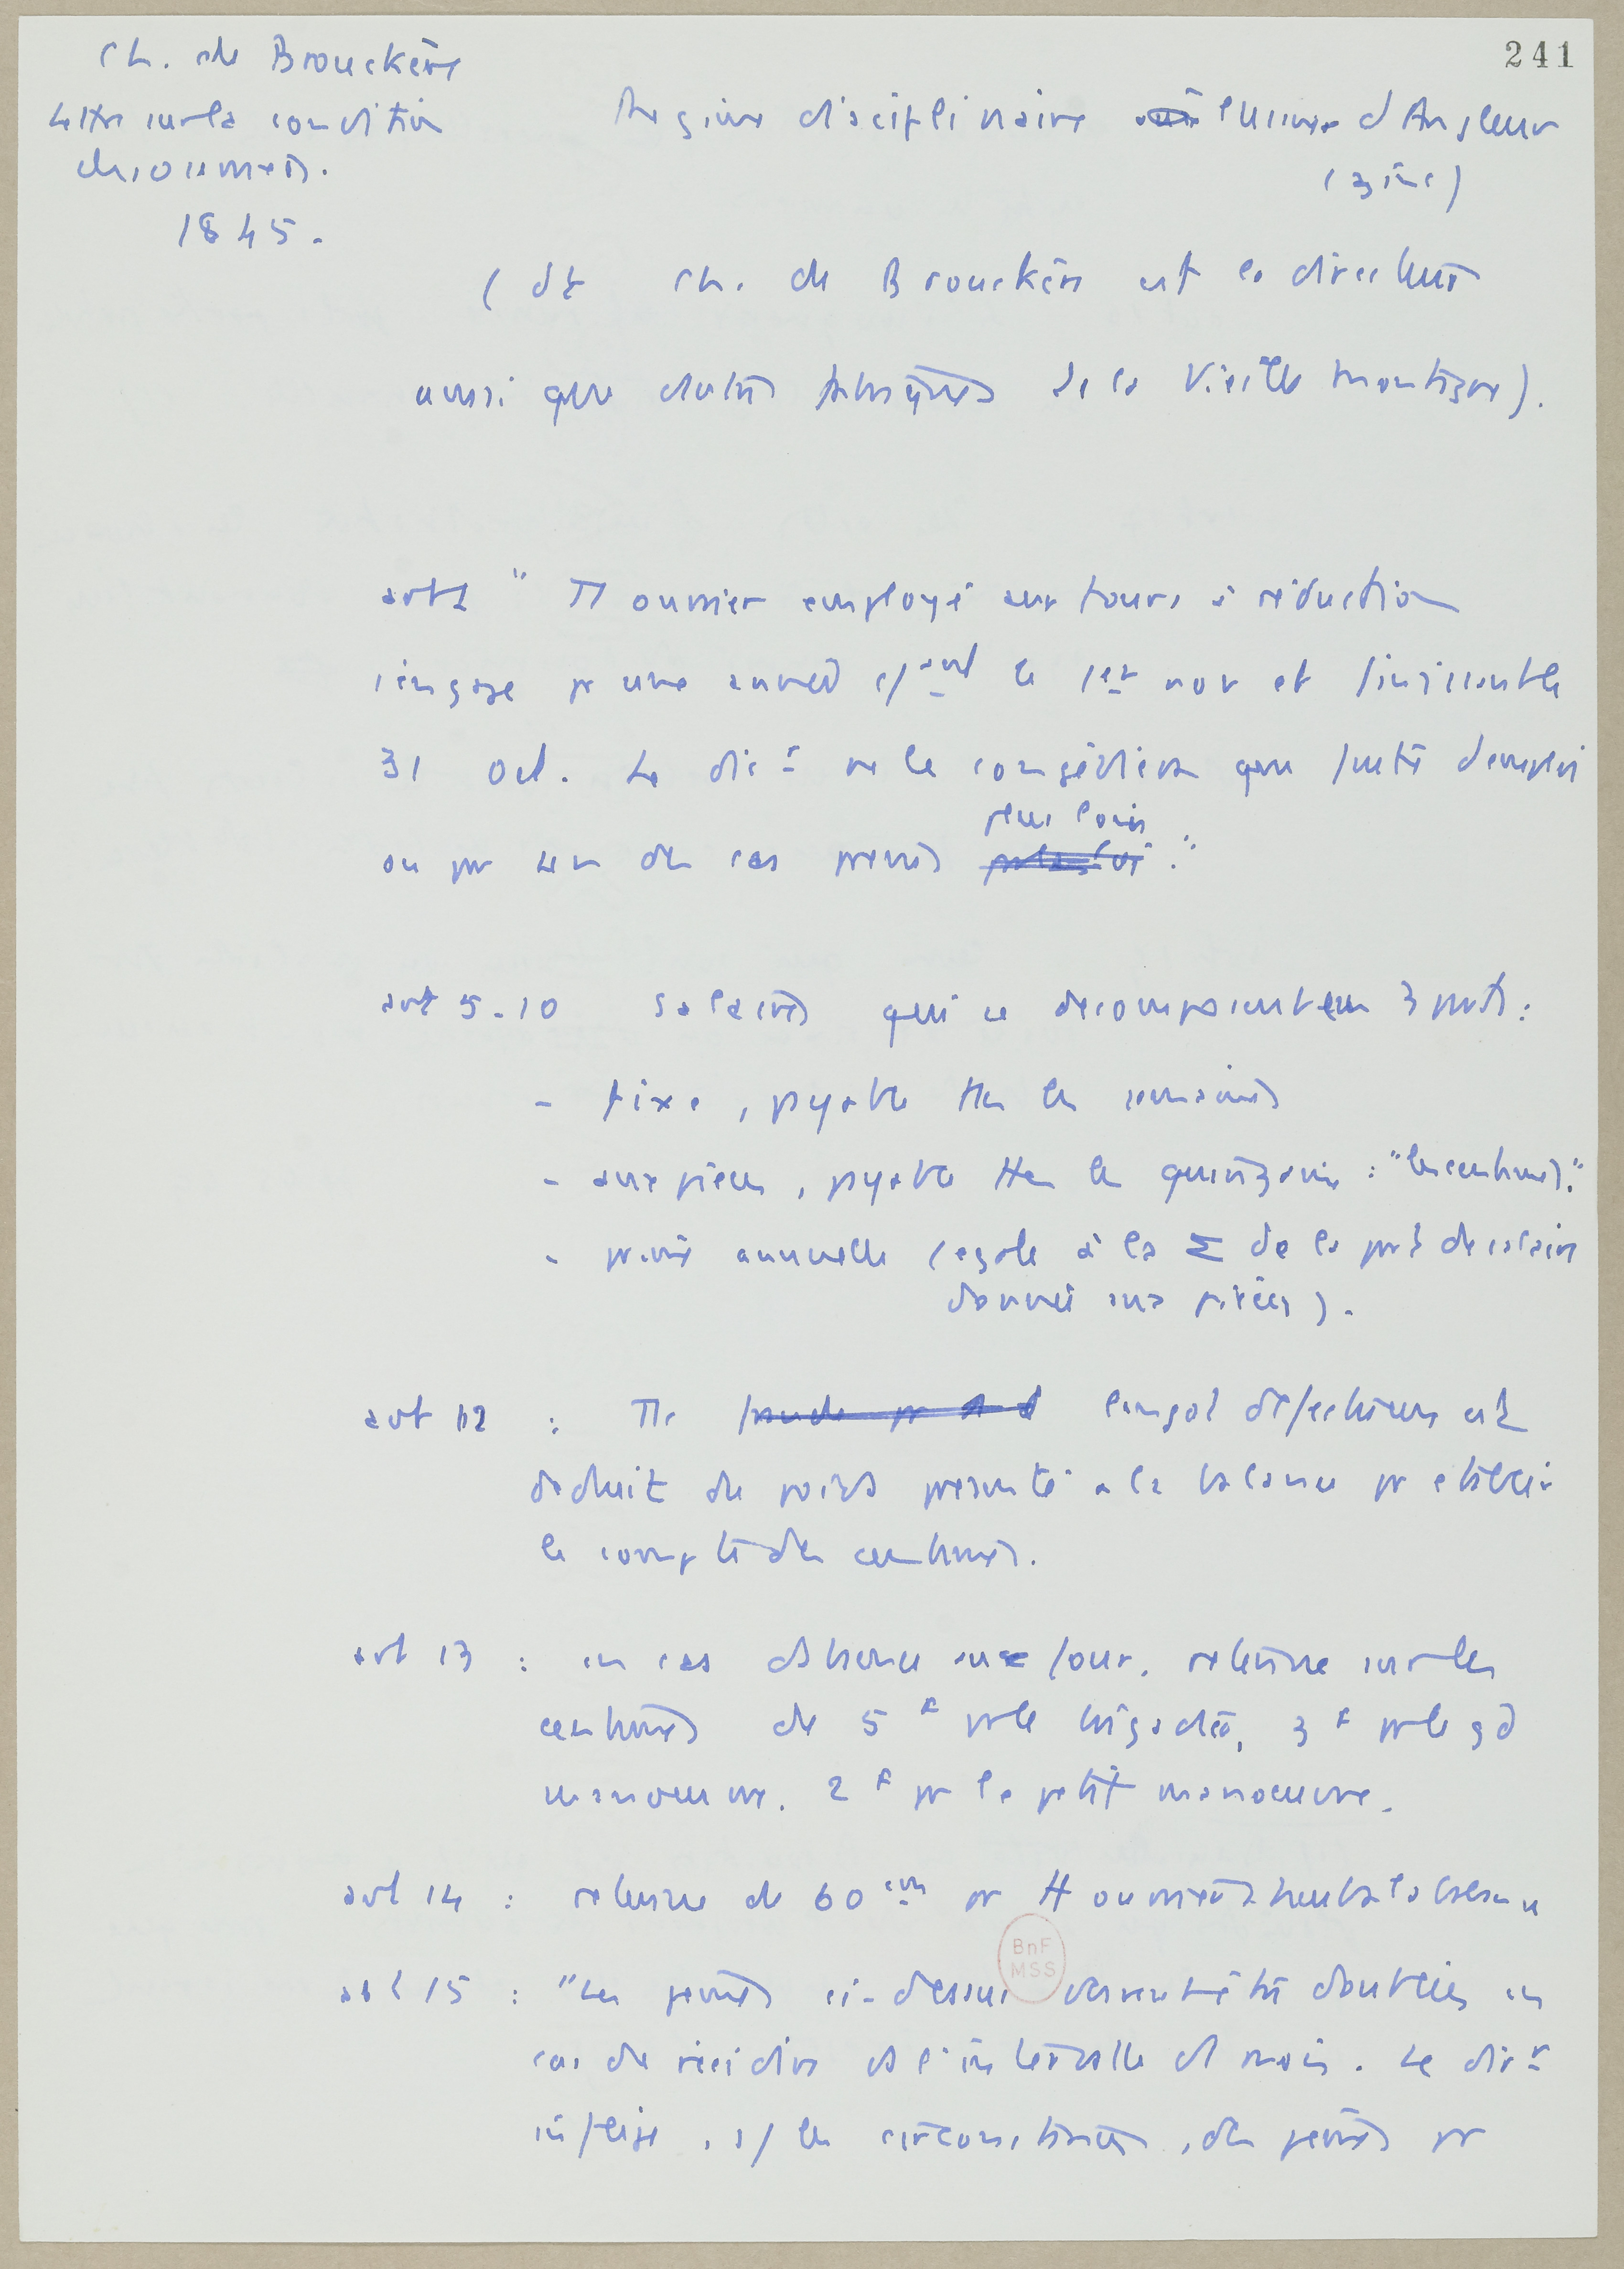 241
Ch. de Brouckère
Lettre sur la condition
des ouvriers.
1845.
Régime disciplinaire l'usine d'Angleur
(zinc)
(dt Ch. de Brouckère est le directeur
aussi que d'autres fabriques de la Vieille Montagne).
art 2 " Tt ouvrier employé aux fours à réduction
s'engage pr une année cçant le 1er nov et finissant le
31 oct. Le dirr ne le congédiera que faute d'emploi
plus loin
ou pr un des cas prévus ."
art 5-10 salaires qui se décomposent en 3 parts :
- fixe, payable ttes les semaines
- aux pièces, payable ttes les quinzaine : "les centimes".
- prime annuelle (égale à la Σ de la part de salaire
donnée aux pièces).
art 12 : Tt lingot défectueux est
déduit du poids présenté à la balance pr établir
le compte des centimes.
art 13 : en cas d'absence aux fours, retenue sur les
centimes de 5 F pr le brigadier, 3 F pr le gd
manoeuvre. 2 F pr le petit manoeuvre.
art 14 : retenue de 60 cm pr tt ouvrier
art 15 : "Les peines ci-dessus devront être doublées en
cas de récidive ds l'intervalle d'1 mois. Le dirr
inflige, s/ les circonstances, des peines pr
BnF
MSS